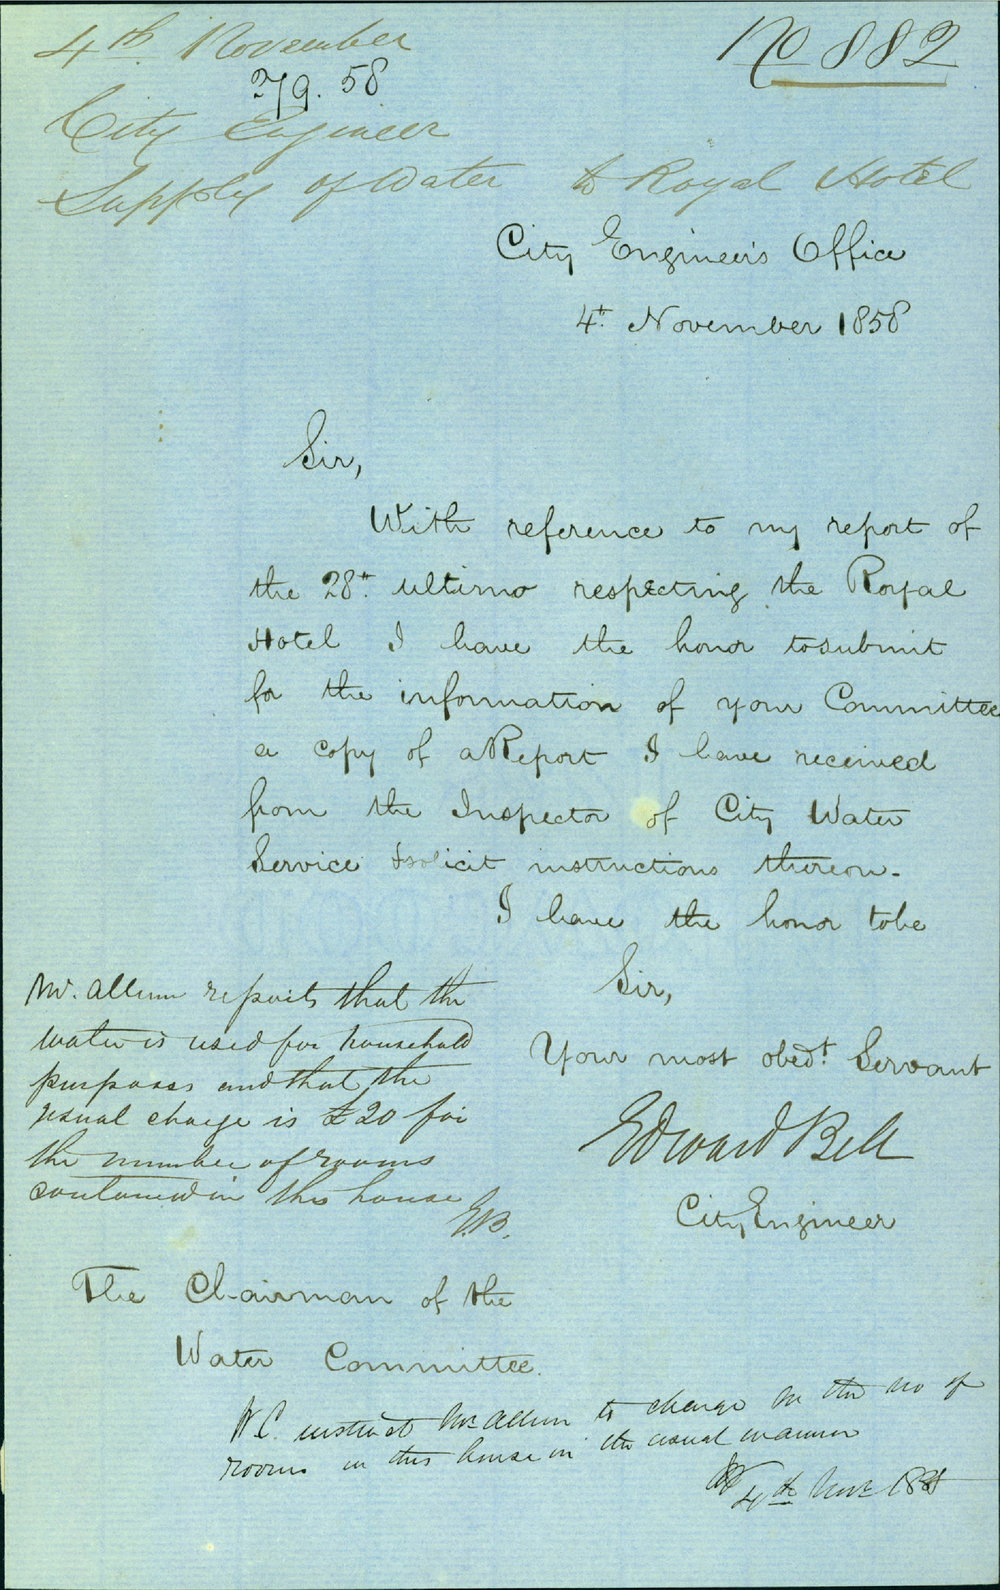 4th November
No 882
279. 58
City Engineer
Supply of Water to Royal Hotel
City Engineer's Office
4t. November 1858
Sir,
With reference to my report of
the 28t. ultimo respecting the Royal
Hotel I have the honor to submit
for the information of your Committee
a copy of a Report I have received
from the Inspector of City Water
Service & solicit instructions thereon.
I have the honor to be
Sir,
Your most obedt. Servant
Edward Bell
City Engineer
Mr. Allum reports that the
water is used for household
purposes and that the
usual charge is £20 for
the number of rooms
contained in this house
E.B.
The Chairman of the
Water Committee.
W.C. instruct Mr. Allum to charge on the no of
rooms in this house in the usual manner
4th Nov. 1858